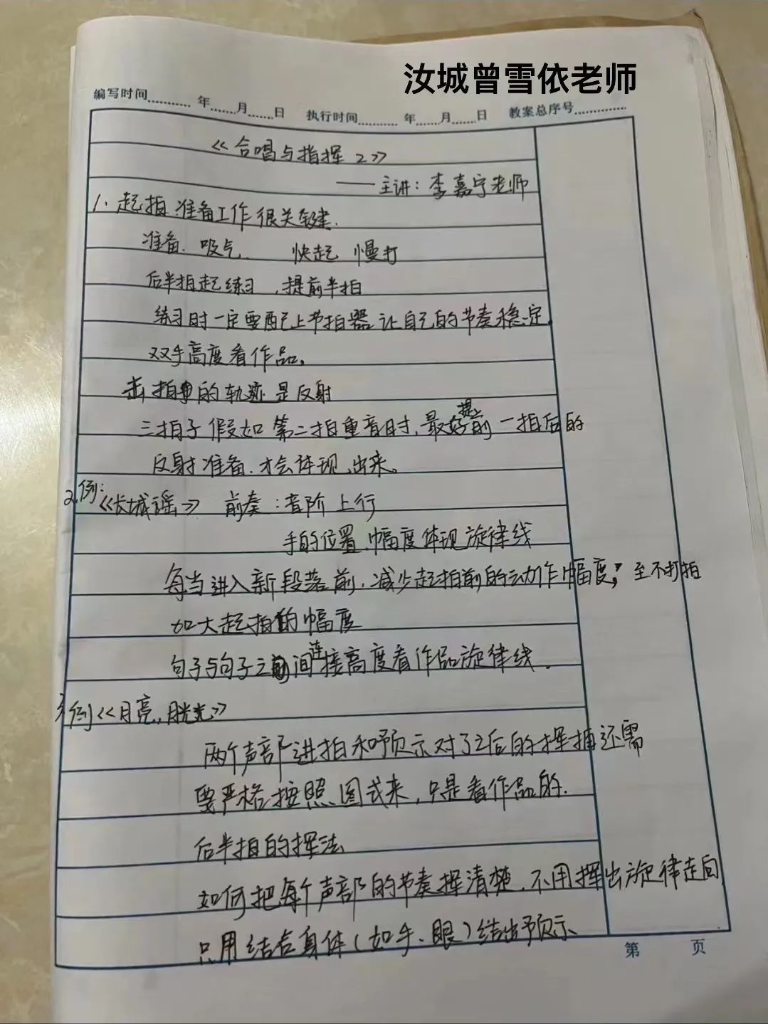 汝城曾雪依老师
编写时间.......... 年......月......日 执行时间.......... 年......月......日 教案总序号..........
《合唱与指挥 2》
——主讲：李嘉宁老师
1. 起拍准备工作很关键.
准备. 吸气 快起 慢打
后半拍起练习，提前半拍
练习时一定要配上节拍器 让自己的节奏稳定.
双手高度看作品。
击拍的轨迹是反射
三拍子 假如 第二拍重音时，最好提前一拍后的
反射准备. 才会体现出来。
2.例：《长城谣》 前奏：音阶上行
手的位置、幅度体现旋律线
每当进入新段落前，减少起拍前的动作幅度，至不打拍
加大起拍的幅度
句子与句子之间连接高度看作品旋律线.
例《月亮，月光光》
两个声部进拍和预示对了之后的挥拍还需
要严格按照图式来，只是看作品的.
后半拍的挥法
如何把每个声部的节奏挥清楚. 不用挥出旋律走向
只用结合身体（如手、眼）给出预示
第 页